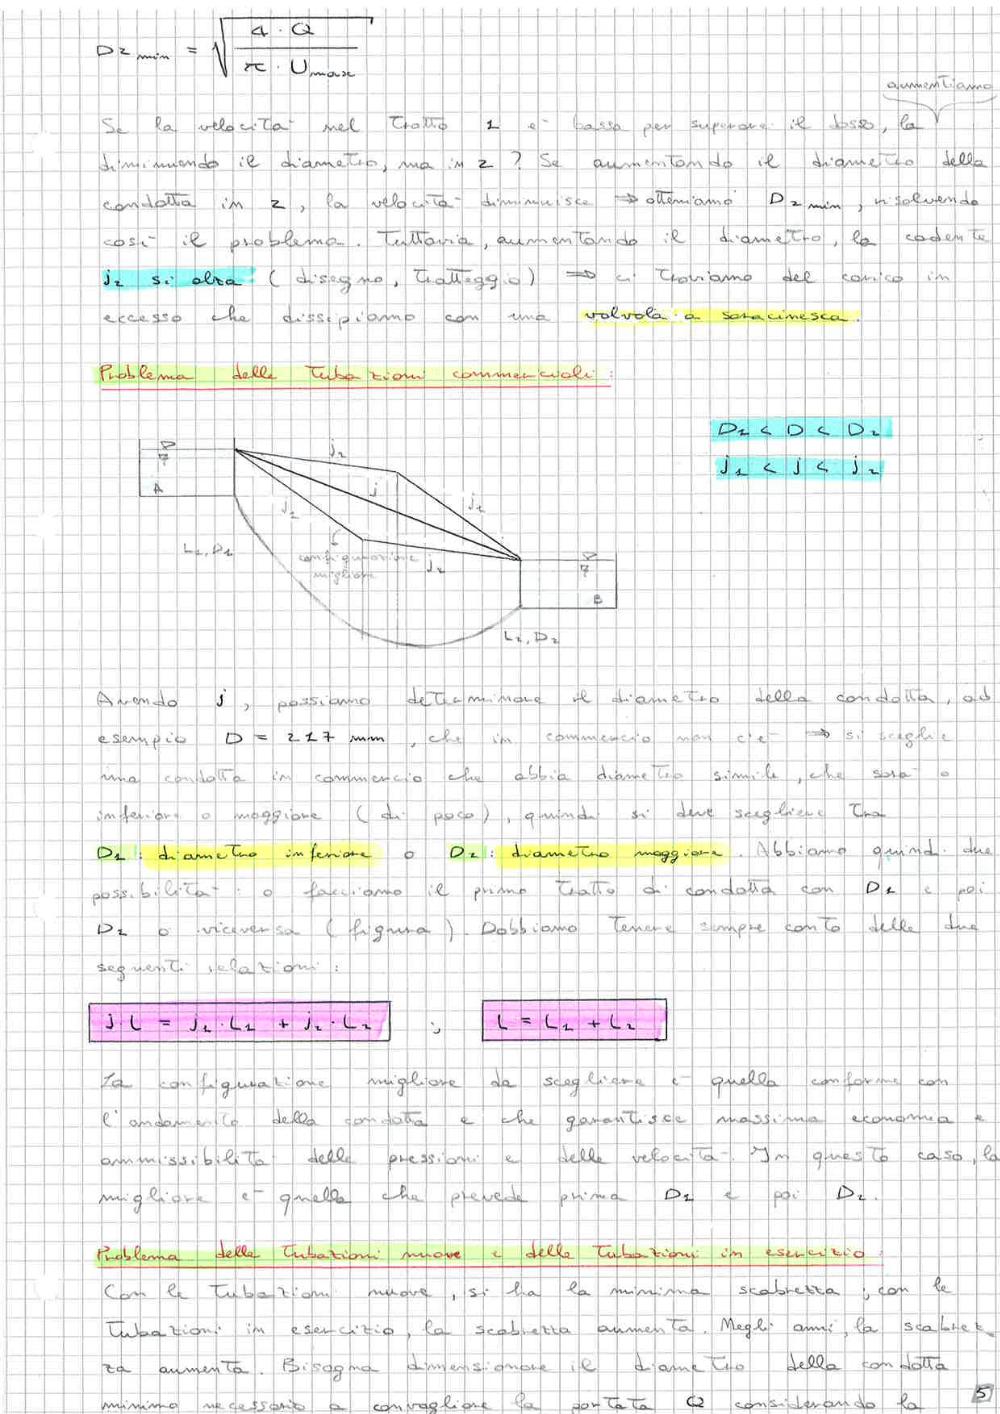 D2 min = √(4 · Q / π · Umax)
aumentiamo
Se la velocità nel tratto 1 è bassa per superare il dosso, la
diminuendo il diametro, ma in 2 ? Se aumentando il diametro della
condotta in 2, la velocità diminuisce ⇒ otteniamo D2 min, risolvendo
così il problema. Tuttavia, aumentando il diametro, la cadente
j2 si alza (disegno, tratteggio) ⇒ ci troviamo del carico in
eccesso che dissipiamo con una valvola a saracinesca.
Problema delle tubazioni commerciali:
D1 < D < D2
j1 < j < j2
A
j2
j
j1
j1
L1, D1
configurazione
migliore
j2
B
L2, D2
Avendo j, possiamo determinare il diametro della condotta, ad
esempio D = 217 mm, che in commercio non c'è ⇒ si sceglie
una condotta in commercio che abbia diametro simile, che sarà o
inferiore o maggiore (di poco), quindi si deve scegliere tra
D1: diametro inferiore o D2: diametro maggiore. Abbiamo quindi due
possibilità: o facciamo il primo tratto di condotta con D1 e poi
D2 o viceversa (figura). Dobbiamo tenere sempre conto delle due
seguenti relazioni:
j · L = j1 · L1 + j2 · L2 ; L = L1 + L2
La configurazione migliore da scegliere è quella conforme con
l'andamento della condotta e che garantisce massima economia e
ammissibilità delle pressioni e delle velocità. In questo caso, la
migliore è quella che prevede prima D1 e poi D2.
Problema delle tubazioni nuove e delle tubazioni in esercizio:
Con le tubazioni nuove, si ha la minima scabrezza; con le
tubazioni in esercizio, la scabrezza aumenta. Negli anni, la scabrez-
za aumenta. Bisogna dimensionare il diametro della condotta
minimo necessario a convogliare la portata Q considerando la
5